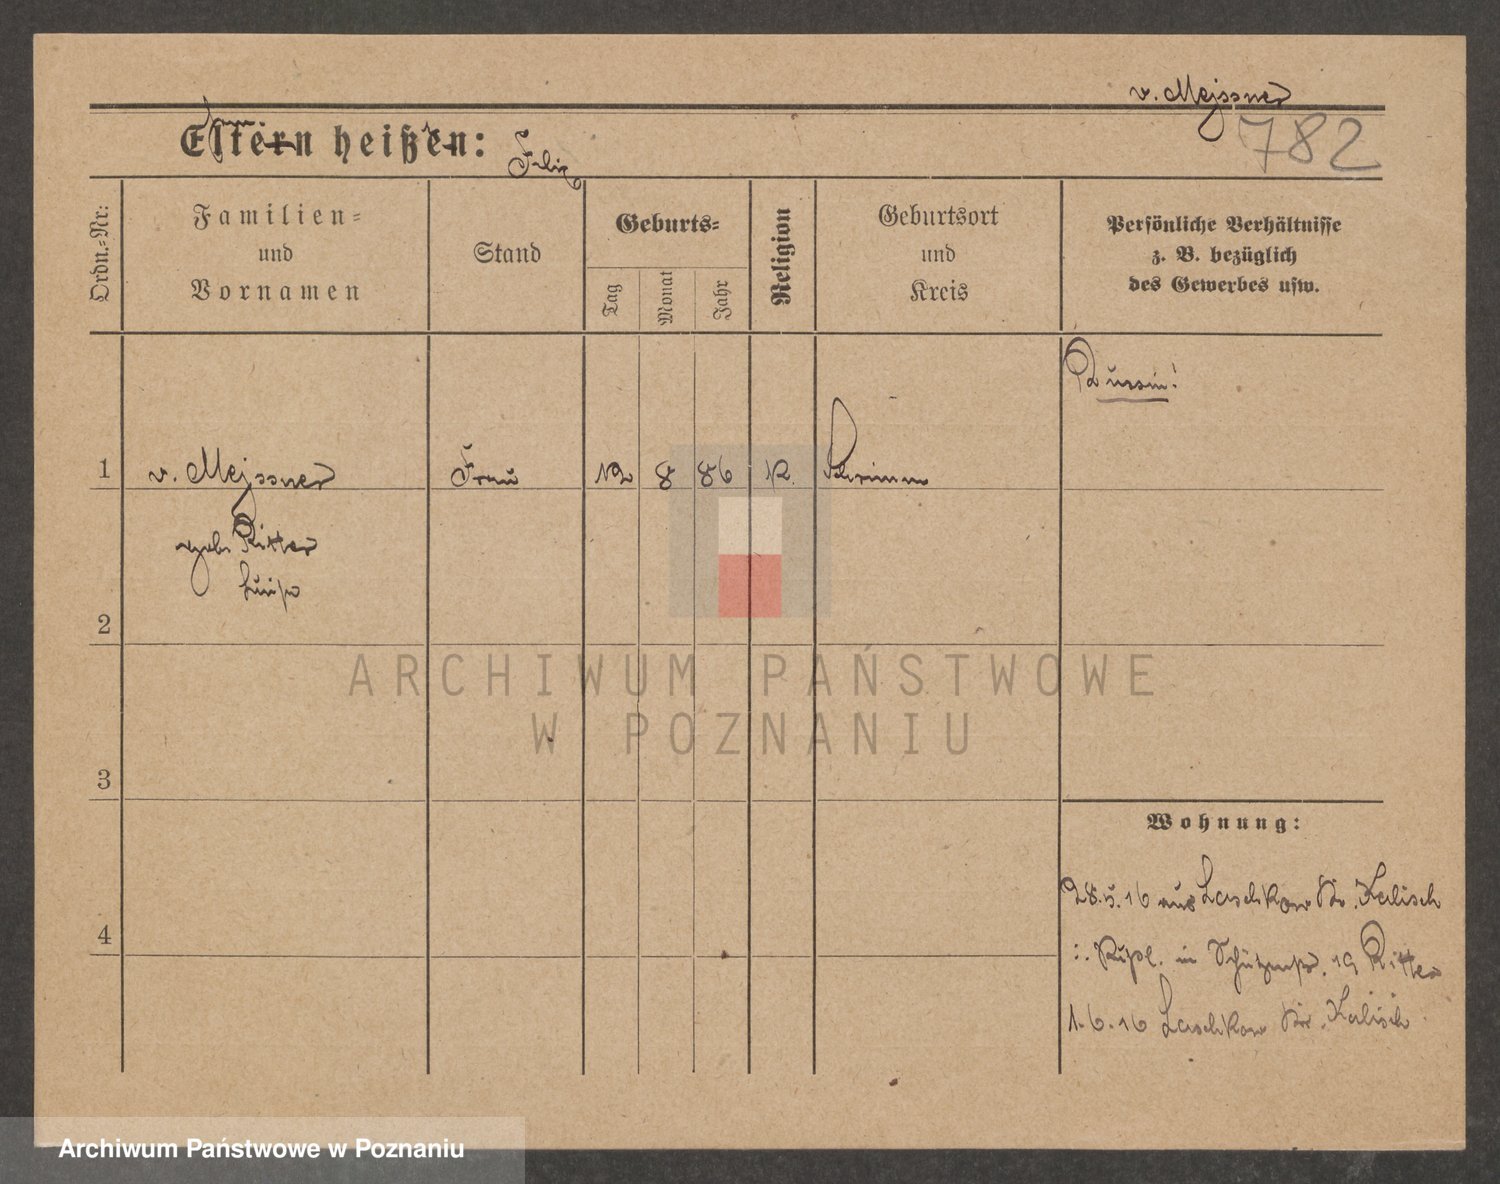 v. Mejssner
782
Eltern heißen:
Felix
Ordn.-Nr:
Familien-
und
Vornamen
Stand
Geburts-
Tag
Monat
Jahr
Religion
Geburtsort
und
Kreis
Persönliche Verhältnisse
z. B. bezüglich
des Gewerbes usw.
Russin!
1 v. Mejssner Frau 12 8 86 K. Schrimm
geb. Ritter
Luise
2
3
4
Wohnung:
28.5.16 aus Laschkow Kr. Kalisch
i. Rußl. in 19 Ritter
1.6.16 Laschkow Kr. Kalisch
ARCHIWUM PAŃSTWOWE
W POZNANIU
Archiwum Państwowe w Poznaniu